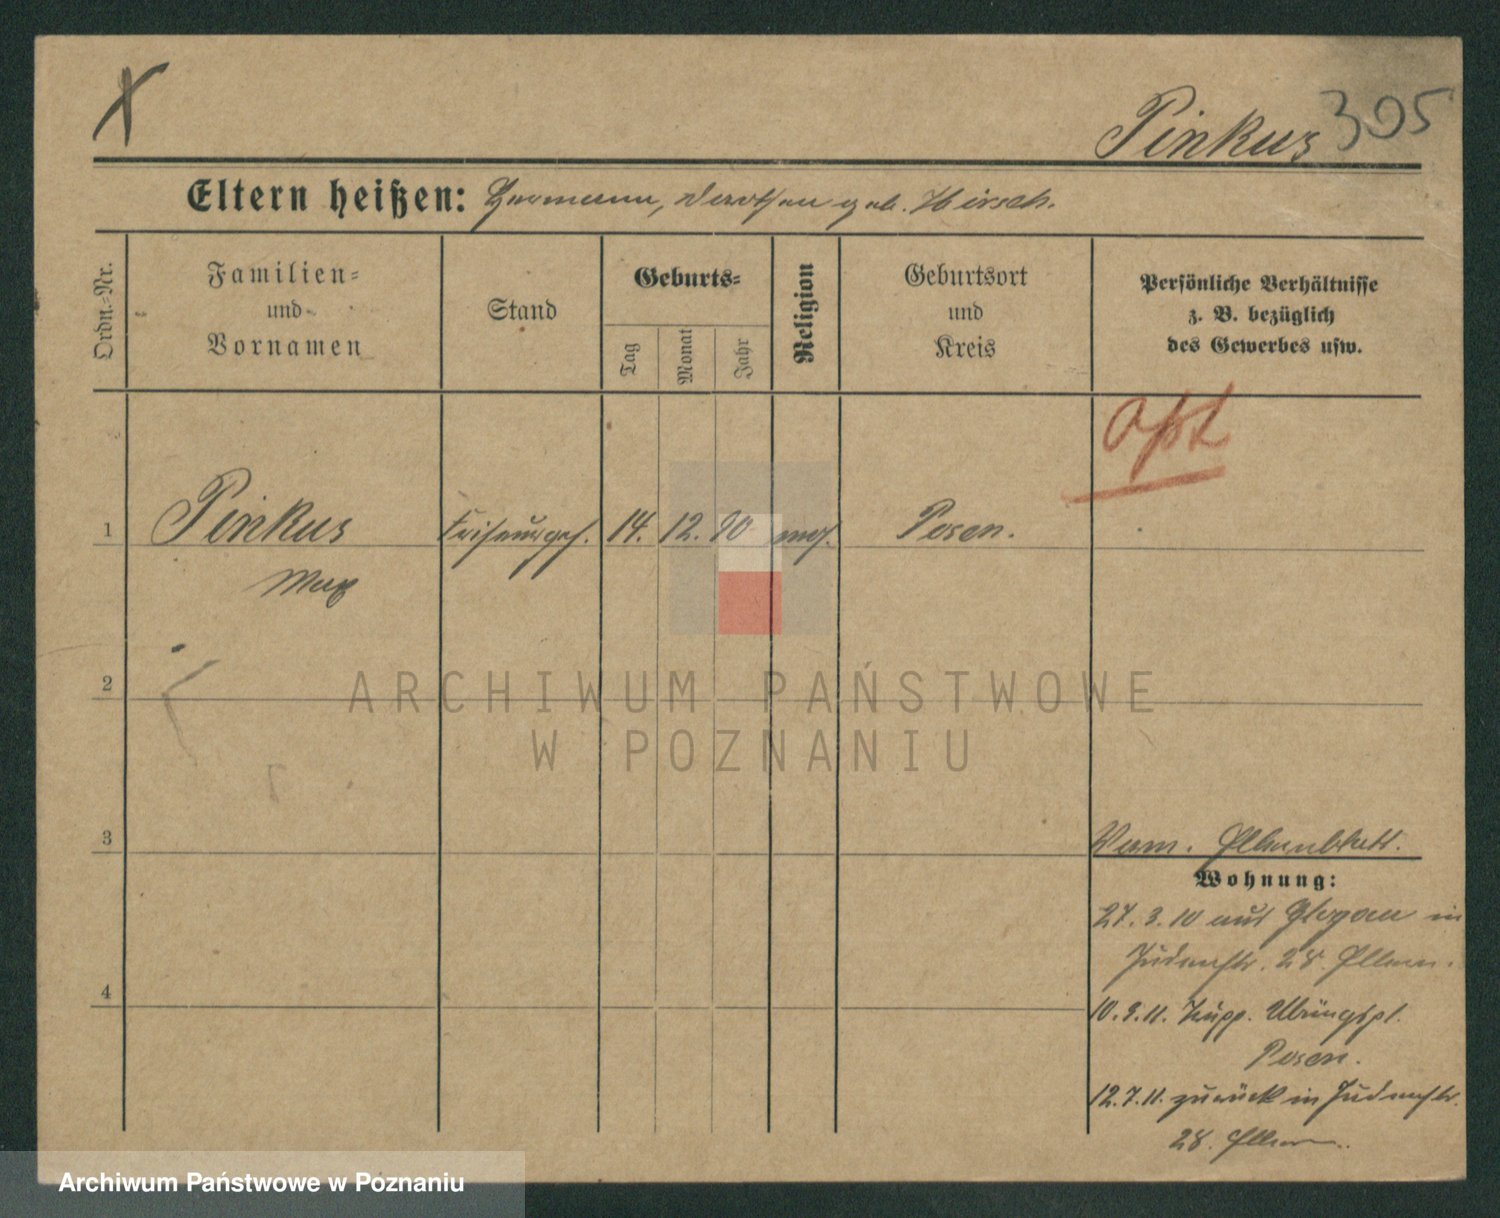 X
Pinkus 395
Eltern heißen: Hermann, Dorothea geb. Hirsch.
Ordn.-Nr.
Familien-
und
Vornamen
Stand
Geburts-
Tag
Monat
Jahr
Religion
Geburtsort
und
Kreis
Persönliche Verhältnisse
z. B. bezüglich
des Gewerbes usw.
1 Pinkus Friseurgeh. 14. 12. 90 mos. Posen.
Max
2
3
4
Elternblatt.
Wohnung:
27. 3. 10 aus Glogau in
Judenstr. 28. Eltern.
10. 9. 11. Trupp. Übungspl.
Posen.
12. 7. 11. zurück in Judenstr.
28. Eltern.
ARCHIWUM PAŃSTWOWE
W POZNANIU
Archiwum Państwowe w Poznaniu